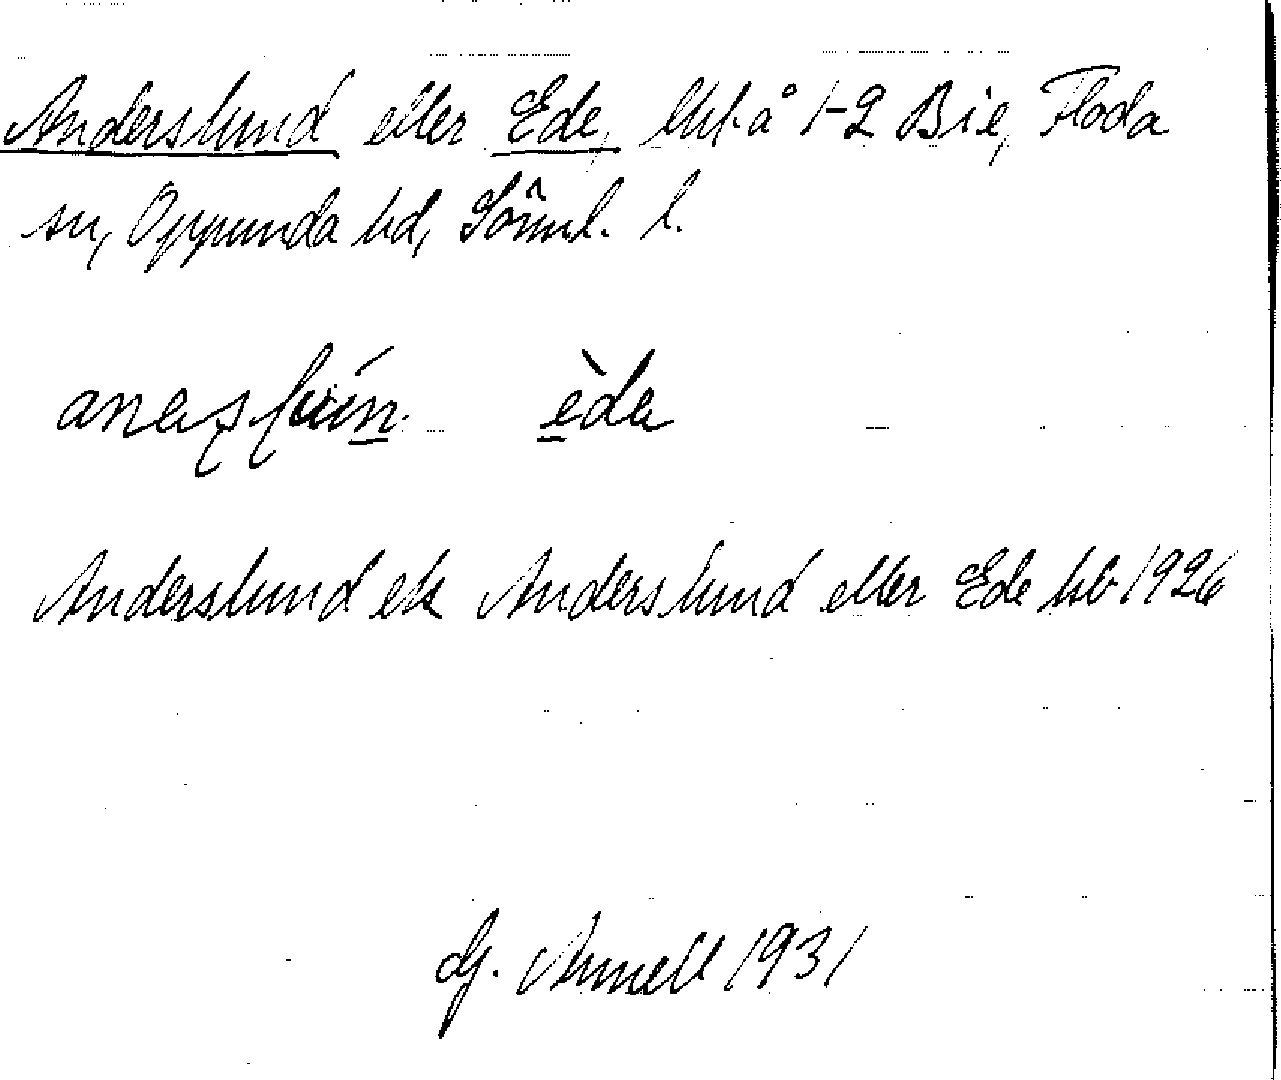 Anderslund eller Ede, lht å 1-2 Bie, Floda
sn, Oppunda hd, Sörml. l.
èda
Anderslund ek Anderslund eller Ede hb 1926
Dj. Arnell 1931